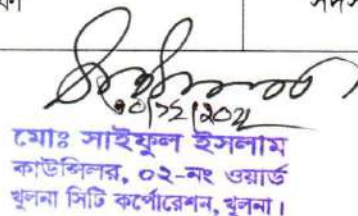 ৩০/১২/২০২
মোঃ সাইফুল ইসলাম
কাউন্সিলর, ০২-নং ওয়ার্ড
খুলনা সিটি কর্পোরেশন, খুলনা।